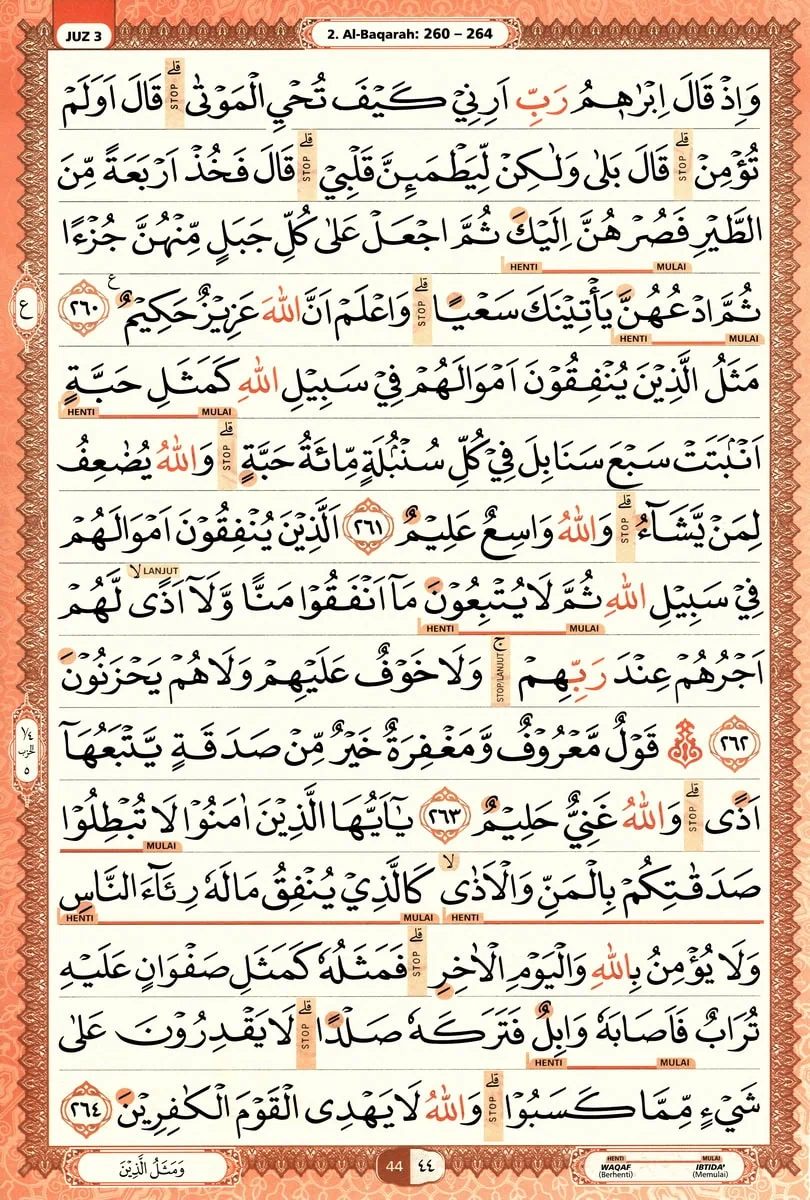 JUZ 3
2. Al-Baqarah: 260 – 264
وَاِذْ قَالَ اِبْرٰهٖمُ رَبِّ اَرِنِيْ كَيْفَ تُحْيِ الْمَوْتٰىۗ STOP قَالَ اَوَلَمْ
تُؤْمِنْۗ STOP قَالَ بَلٰى وَلٰكِنْ لِّيَطْمَىِٕنَّ قَلْبِيْۗ STOP قَالَ فَخُذْ اَرْبَعَةً مِّنَ
الطَّيْرِ فَصُرْهُنَّ اِلَيْكَ ثُمَّ اجْعَلْ عَلٰى كُلِّ جَبَلٍ مِّنْهُنَّ جُزْءًا
MULAI HENTI
ثُمَّ ادْعُهُنَّ يَأْتِيْنَكَ سَعْيًاۗ STOP وَاعْلَمْ اَنَّ اللّٰهَ عَزِيْزٌ حَكِيْمٌ ࣖ ٢٦٠
ع
MULAI HENTI
مَثَلُ الَّذِيْنَ يُنْفِقُوْنَ اَمْوَالَهُمْ فِيْ سَبِيْلِ اللّٰهِ كَمَثَلِ حَبَّةٍ
MULAI HENTI
اَنْۢبَتَتْ سَبْعَ سَنَابِلَ فِيْ كُلِّ سُنْۢبُلَةٍ مِّائَةُ حَبَّةٍۗ STOP وَاللّٰهُ يُضٰعِفُ
لِمَنْ يَّشَاۤءُۗ STOP وَاللّٰهُ وَاسِعٌ عَلِيْمٌ ٢٦١ اَلَّذِيْنَ يُنْفِقُوْنَ اَمْوَالَهُمْ
فِيْ سَبِيْلِ اللّٰهِ ثُمَّ لَا يُتْبِعُوْنَ مَآ اَنْفَقُوْا مَنًّا وَّلَآ اَذًىۙ LANJUT لَّهُمْ
MULAI HENTI
اَجْرُهُمْ عِنْدَ رَبِّهِمْۚ STOP/LANJUT وَلَا خَوْفٌ عَلَيْهِمْ وَلَا هُمْ يَحْزَنُوْنَ
٢٦٢ ۞ قَوْلٌ مَّعْرُوْفٌ وَّمَغْفِرَةٌ خَيْرٌ مِّنْ صَدَقَةٍ يَّتْبَعُهَآ
١/٤ الحزب ٥
اَذًىۗ STOP وَاللّٰهُ غَنِيٌّ حَلِيْمٌ ٢٦٣ يٰٓاَيُّهَا الَّذِيْنَ اٰمَنُوْا لَا تُبْطِلُوْا
MULAI
صَدَقٰتِكُمْ بِالْمَنِّ وَالْاَذٰىۙ كَالَّذِيْ يُنْفِقُ مَالَهٗ رِئَاۤءَ النَّاسِ
HENTI MULAI HENTI
وَلَا يُؤْمِنُ بِاللّٰهِ وَالْيَوْمِ الْاٰخِرِۗ STOP فَمَثَلُهٗ كَمَثَلِ صَفْوَانٍ عَلَيْهِ
تُرَابٌ فَاَصَابَهٗ وَابِلٌ فَتَرَكَهٗ صَلْدًاۗ STOP لَا يَقْدِرُوْنَ عَلٰى
MULAI HENTI
شَيْءٍ مِّمَّا كَسَبُوْاۗ STOP وَاللّٰهُ لَا يَهْدِى الْقَوْمَ الْكٰفِرِيْنَ ٢٦٤
وَمَثَلُ الَّذِيْنَ
44 ٤٤
HENTI MULAI
WAQAF IBTIDA'
(Berhenti) (Memulai)